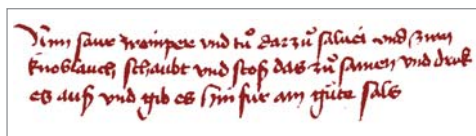 Nim saur weinpere vnd tuͦ dar zuͦ saluei vnd zwen
knoblauch schaubt vnd stoß das zuͦ samen vnd druk
es auß vnd gib es hin fur ain gute sals